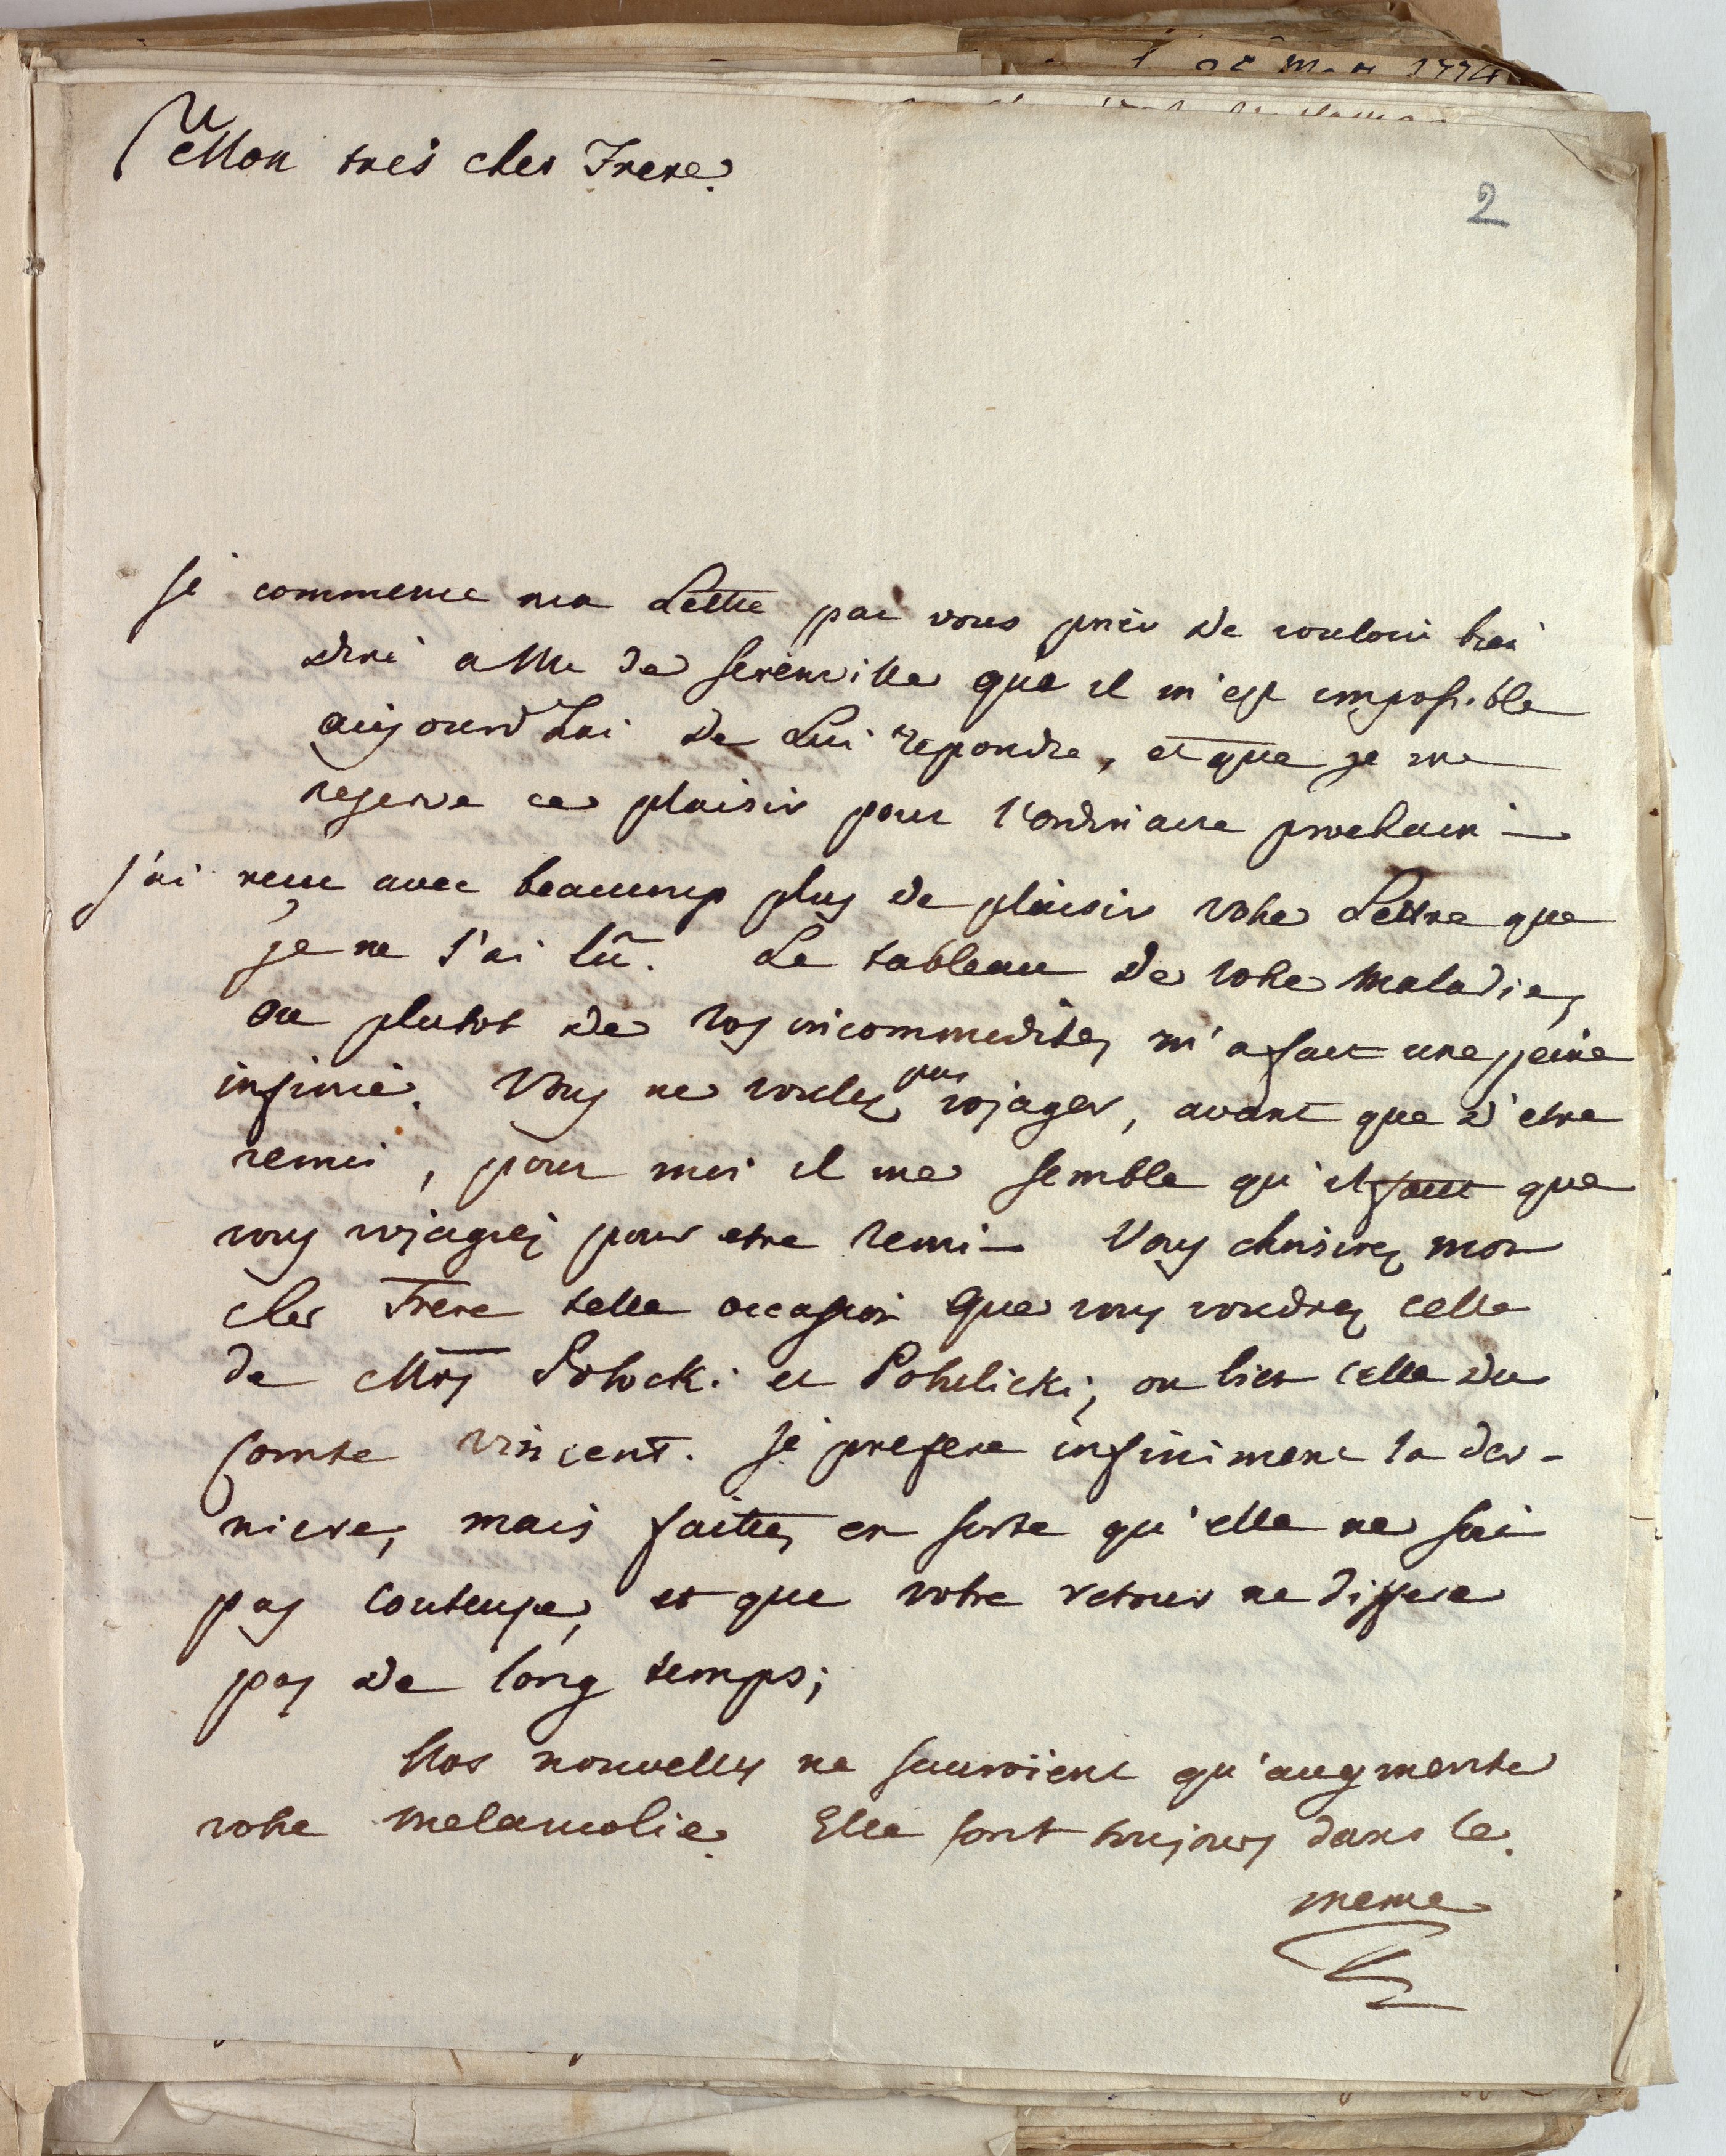 Mon tres cher Frere.
2
Je commence ma Lettre par vous prier de vouloir bien
dire a Mr de Serenville que il m'est impossible
aujourd hui de Lui repondre, et que je me
reserve ce plaisir pour l'ordinaire prochain —
j'ai reçu avec beaucoup plus de plaisir votre Lettre que
je ne l'ai lû. Le tableau de votre maladie,
ou plutot de vos incommodites m'a fait une peine
infinie. Vous ne voulez pas vojager, avant que d'etre
remis, pour moi il me semble qu'il faut que
vous vojagiez pour etre remi — Vous choisirez mon
cher Frere telle occasion que vous voudrez celle
de Mrs Potocki et Potulicki, ou bien celle du
Comte Vincent. Je prefere infiniment la der-
niere, mais faittes en sorte qu'elle ne soi
pas couteuse, et que votre retour ne differe
pas de long temps;
Nos nouvelles ne sauroient qu'augmenter
votre melancolie. Elle sont toujours dans le
meme